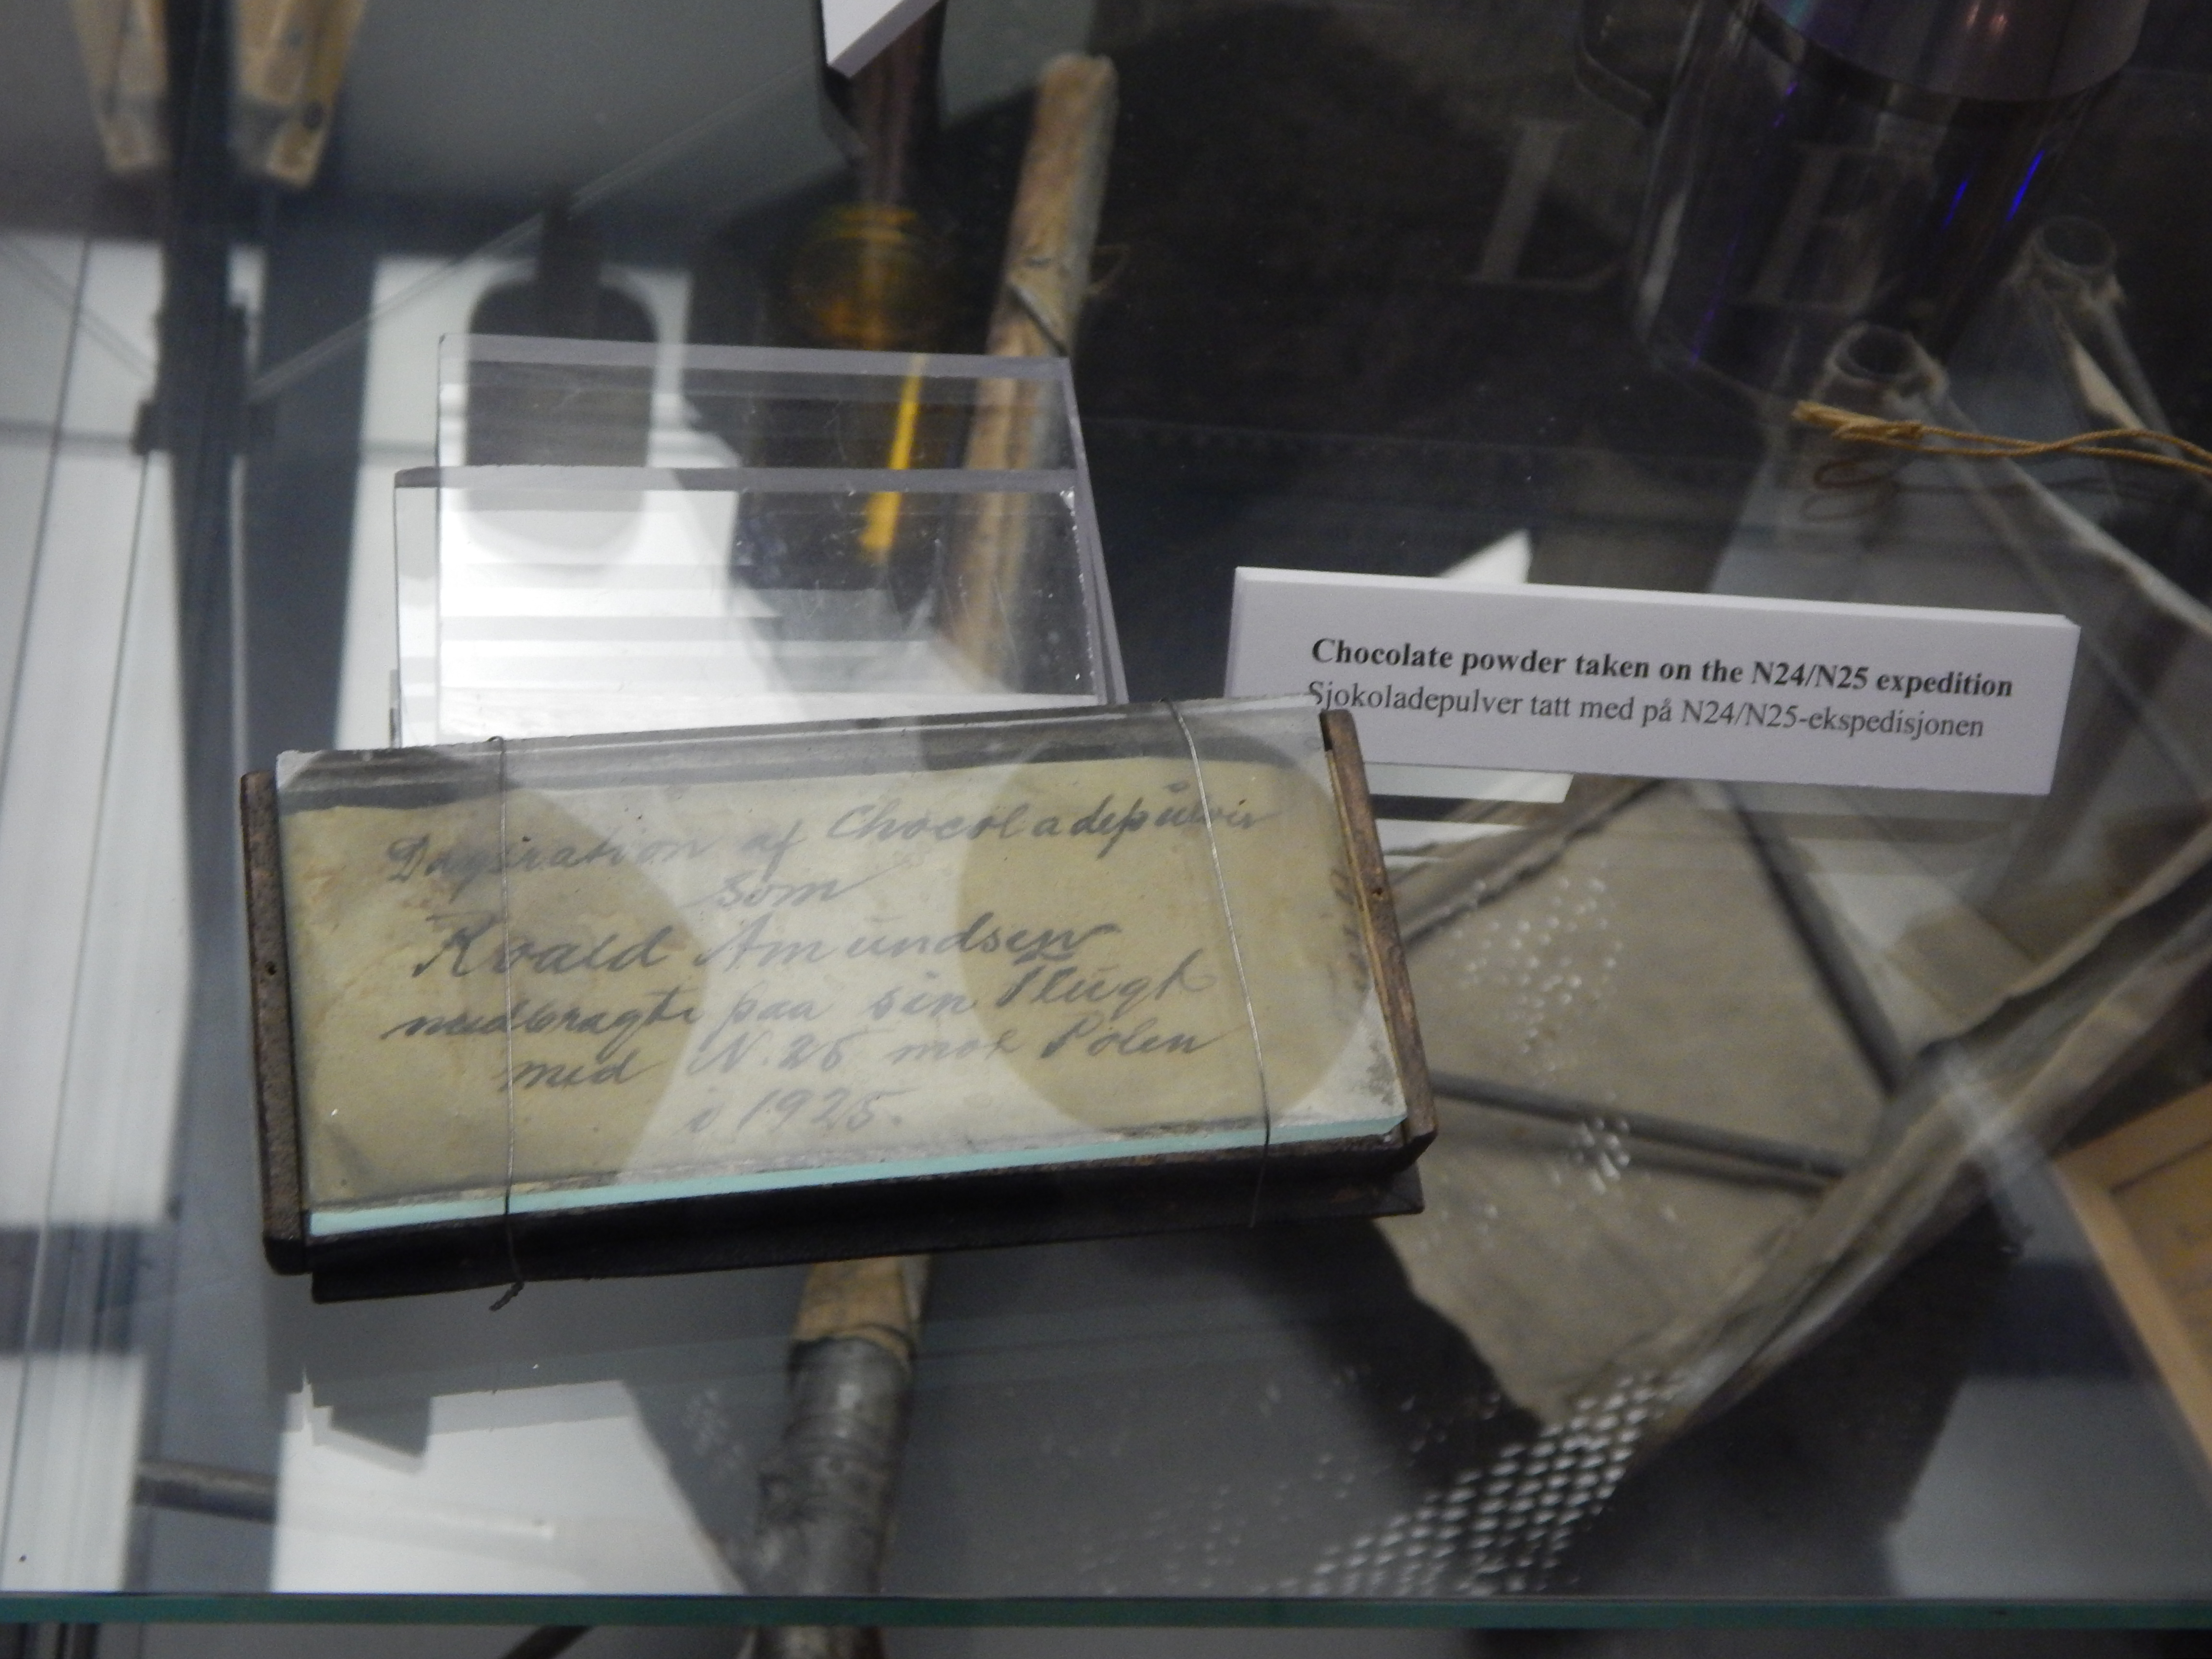 Chocolate powder taken on the N24/N25 expedition
Sjokoladepulver tatt med på N24/N25-ekspedisjonen
Dagsration af Chocoladepulver
som
Roald Amundsen
medbragte paa sin Flugt
med N.25 mot Polen
i 1925.